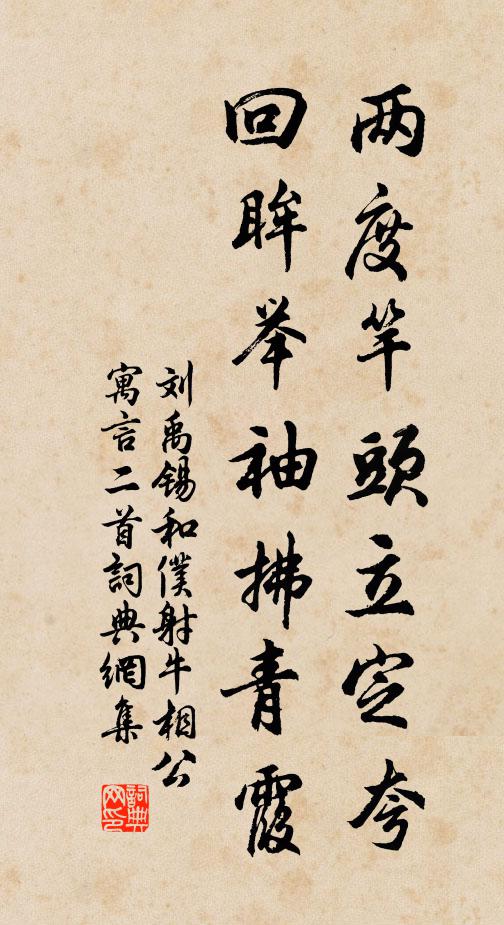 两度竿頭立定夸
回眸举袖拂青霞
刘禹锡和僕射牛相公
寓言二首詞典網集
詞典网印